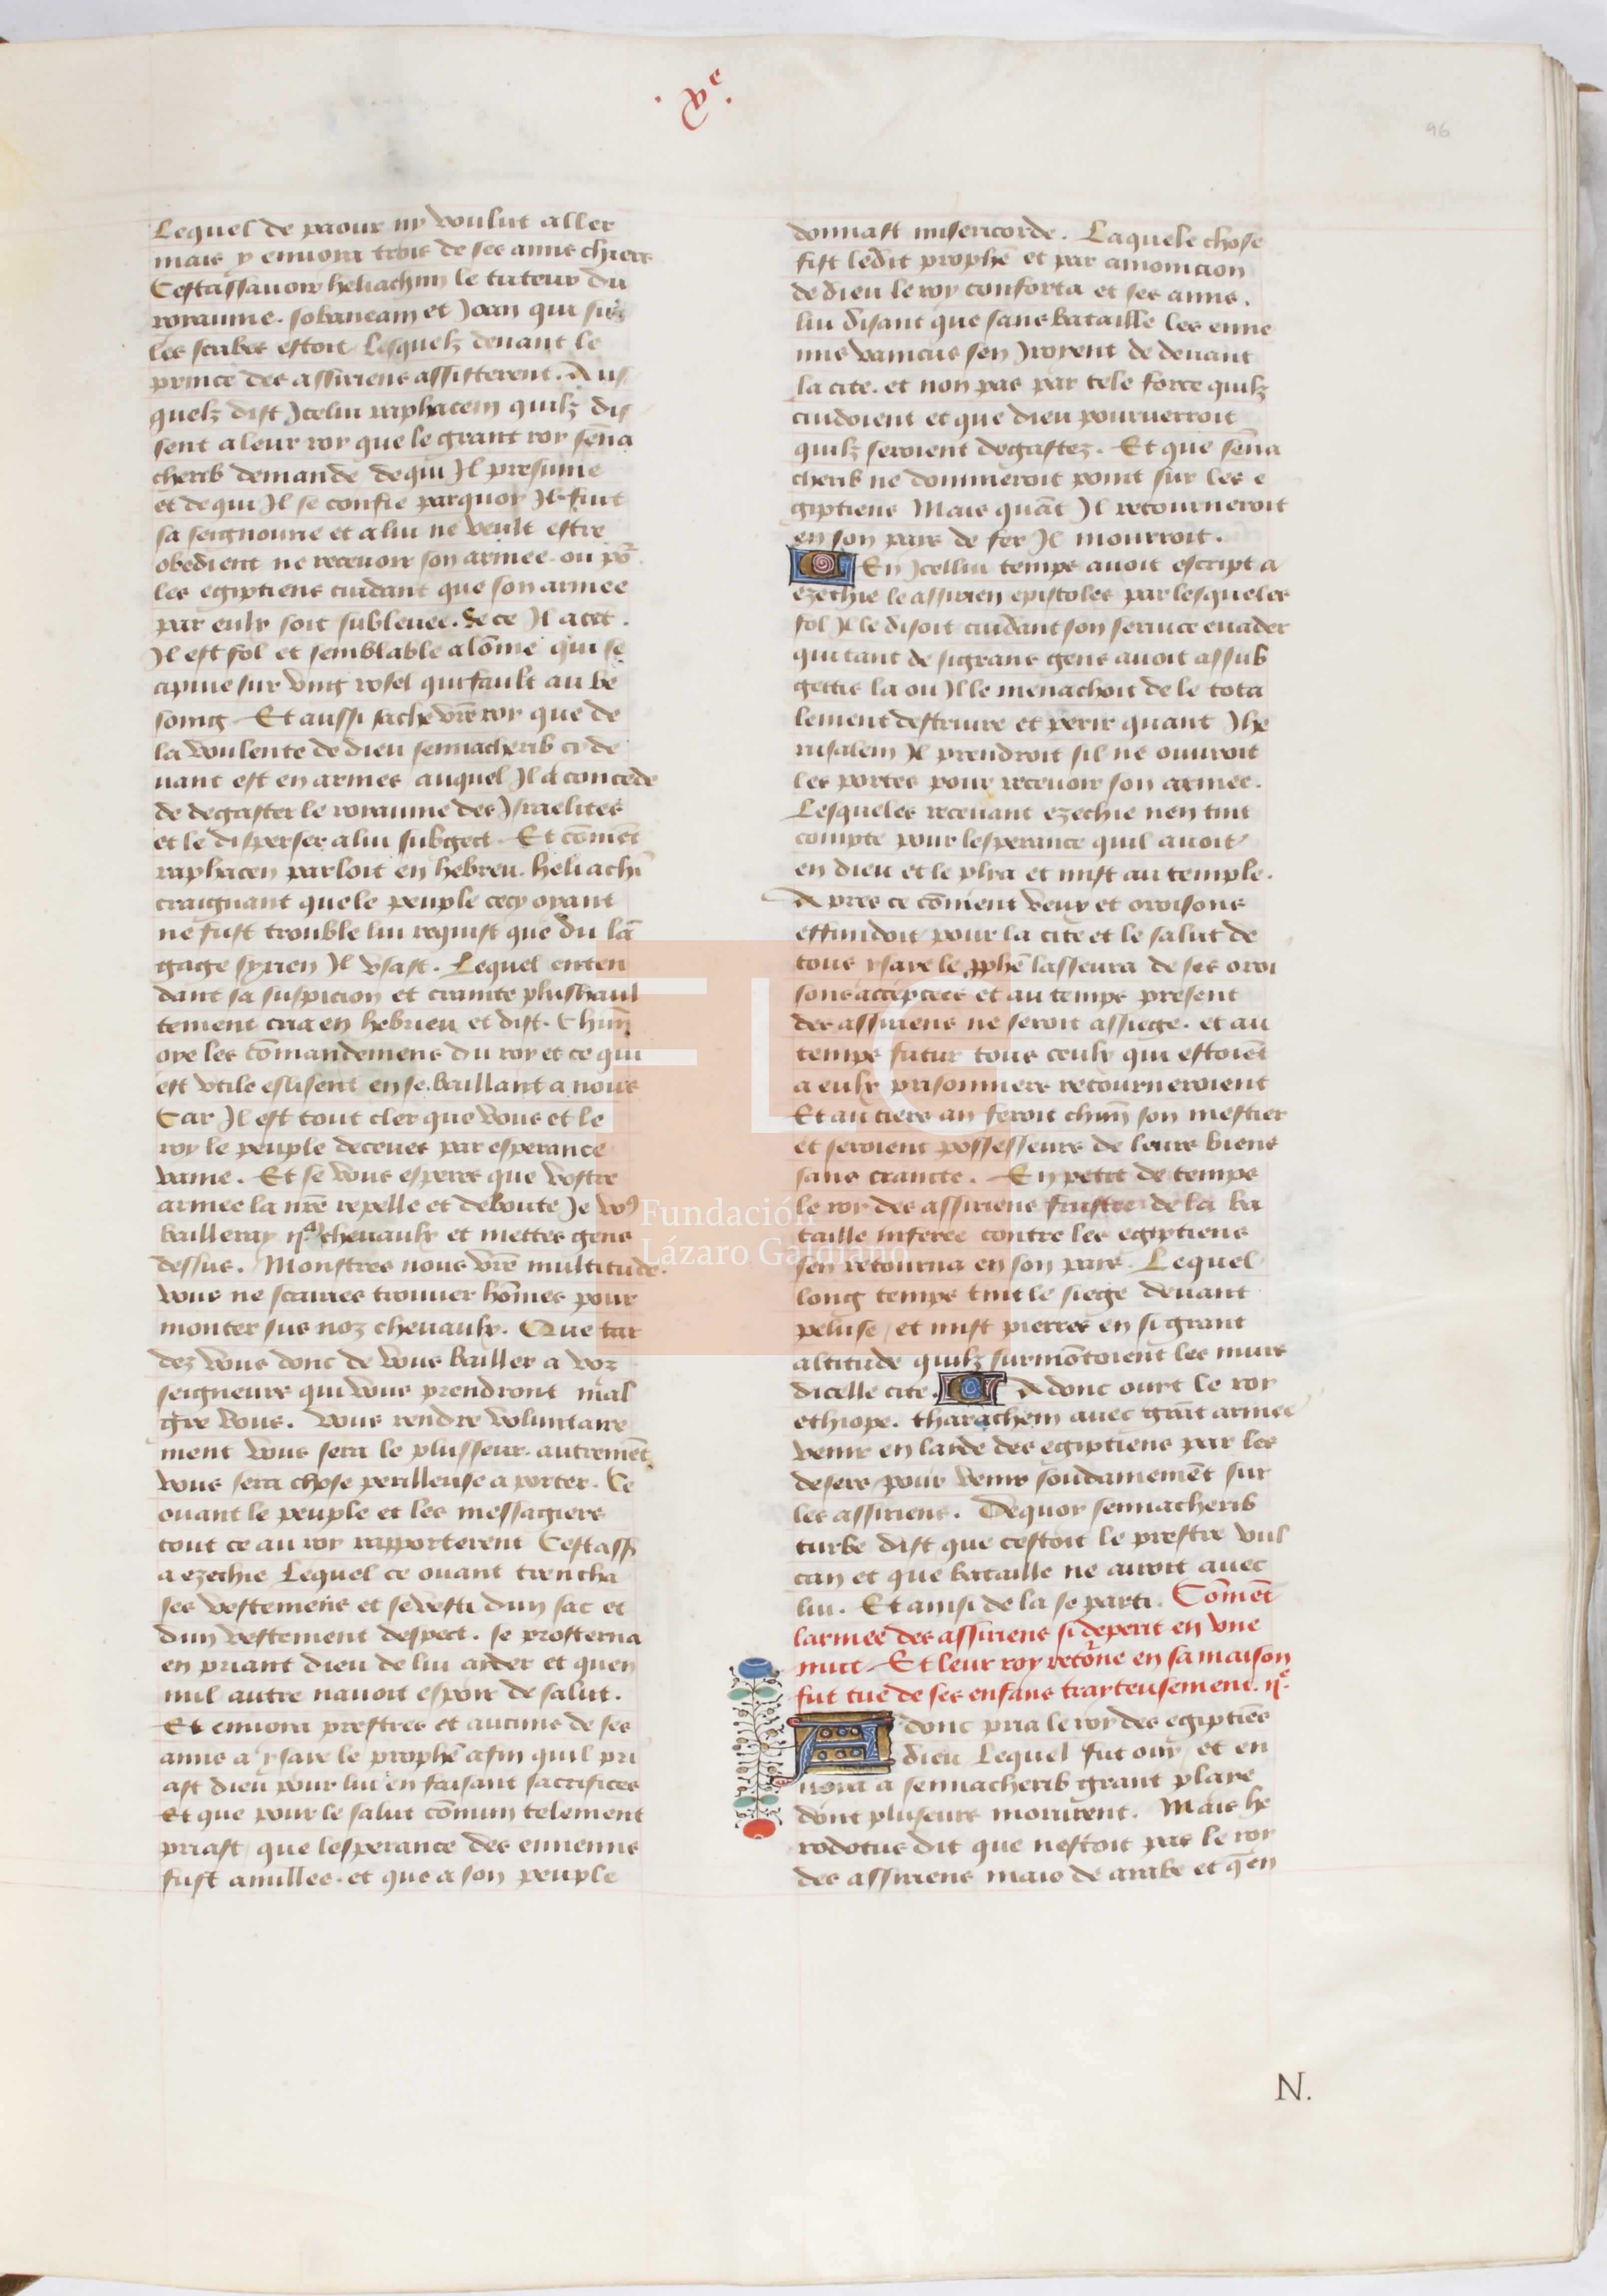 .xe.
96
Lequel de paour ny voulut aller
mais y enuoya trois de ses amis chiers
Cestassauoir heliachim le tuteur du
royaume. sobaneam et Joan qui sus
les scribes estoit Lesquelz deuant le
prince des assiriens assisterent. Aus
quelz dist Jcelui raphacem quilz dis
sent a leur roy que le grant roy sen̄a
cherib demande dequi Jl presume
et dequi Jl se confie parquoy Jl fuit
sa seignourie et a lui ne veult estre
obedient ne receuoir son armee. ou po᷑
les egiptiens cuidant que son armee
par eulx soit subleuee. de ce Jl acert.
Jl est fol et semblable a lōme qui se
apuie sur vng rosel qui fault au be
soing. Et aussi sache vr̄e roy que de
la voulente de dieu sennacherib cy de
uant est en armes auquel Jl a concede
de degaster le royaume des Jsraelites
et le disperser a lui subgect. Et cōmēt
raphacen parloit en hebreu. heliachī
craignant que le peuple cecy oyant
ne fust trouble lui requist que du lā
gage syrien Jl vsast. Lequel enten
dant sa suspicion et crainte plushaul
tement cria en hebrieu et dist. Chun̄
oye les cōmandemens du roy et ce qui
est vtile eslisent en se baillant a nous
Car Jl est tout cler que vous et le
roy le peuple deceues par esperance
vaine. Et se vous esperes que vostre
armee la nr̄e repelle et deboute Je vo9
bailleray ij.ᵃ cheuaulx et mettes gens
dessus. Monstres nous vr̄e multitude.
vous ne scauries trouuer hōmes pour
monter sus noz cheuaulx. Que tar
dez vous donc de vous bailler a voz
seigneurs qui vous prendront mal
gre vous. vous rendre voluntaire
ment vous sera le plusseur. autremēt
vous sera chose perilleuse a porter. Ce
ouant le peuple et les messagiers
tout ce au roy rapporterent Cestass̄
a ezechie Lequel ce ouant trencha
ses vestemens et se vesti dun sac et
dun vestement despect. se prosterna
en priant dieu de lui aider et quen
nul autre nauoit espoir de salut.
Et enuoya prestres et aucuns de ses
amis a ysaye le prophē afin quil pri
ast dieu pour lui en faisant sacrifices
Et que pour le salut cōmun telement
priast que lesperance des ennemis
fust anullee. et que a son peuple
donnast misericorde. Laquele chose
fist ledit prophē et par amonicion
de dieu le roy conforta et ses amis.
lui disant que sans bataille les enne
mis vaincus sen Jroyent de deuant
la cite. et non pas par tele force quilz
cuidoient et que dieu pouruerroit
quilz seroient degastez. Et que sen̄a
cherib ne domineroit point sur les e
giptiens Mais quāt Jl retourneroit
en son pais de fer Jl mourroit.
En Jcellui temps auoit escript a
ezechie le assirien epistoles par lesqueles
fol Jl le disoit cuidant son seruice euader
qui tant de si grans gens auoit assub
gettis la ou Jl le menachoit de le tota
lement destruire et perir quant Jhe
rusalem Jl prendroit sil ne ouuroit
les portes pour receuoir son armee.
Lesqueles receuant ezechie nen tint
compte pour lesperance quil auoit
en dieu et le plya et mist au temple.
Apres ce cōment veux et oroisons
effundoit pour la cite et le salut de
tous ysaye le pphē lasseura de ses oroi
sons acceptees et au temps present
des assiriens ne seroit assiege. et au
temps futur tous ceulx qui estoiēt
a eulx prisonniers retourneroient
Et au tiers an feroit chun̄ son mestier
et seroient possesseurs de leurs biens
sans craincte. En petit de temps
le roy des assiriens frustre de la ba
taille inferee contre les egiptiens
sen retourna en son pais. Lequel
long temps tint le siege deuant
peluse / et mist pierres en si grant
altitude quilz surmōtoient les murs
dicelle cite. Adonc ourt le roy
ethiope. tharachem auec grāt armee
venir en laide des egiptiens par les
desers pour venir soudainemēt sur
les assiriens. Dequoy sennacherib
turbe dist que cestoit le prestre vul
can et que bataille ne auroit auec
lui. Et ainsi de la se parti. Cōmēt
larmee des assiriens si deperit en vne
nuit. Et leur roy reto᷑ne en sa maison
fut tue de ses enfans trayteusement. ij.ᵉ
Adonc pria le roy des egiptiēs
dieu Lequel fut ouy / et en
uoya a sennacherib grant playe
dont pluseurs morurent. Mais he
rodotus dit que nestoit pas le roy
des assiriens mais de arabe et q̄ en
N.
FLG
Fundación
Lázaro Galdiano